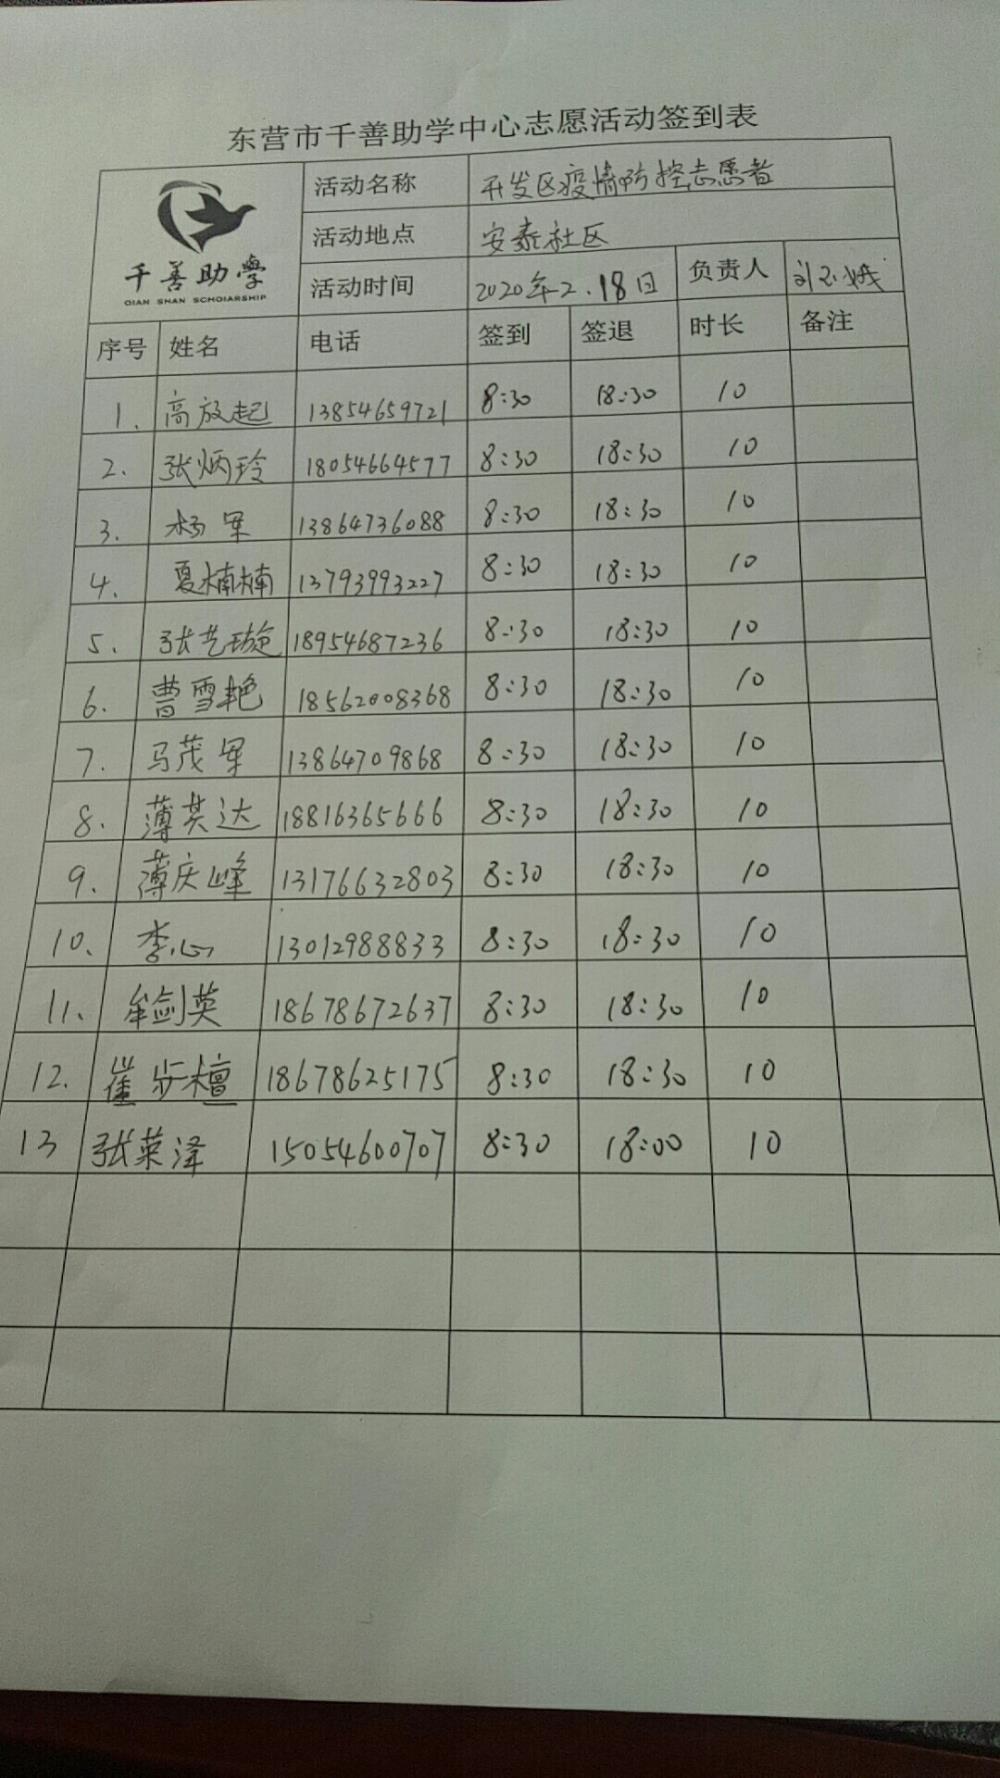 东营市千善助学中心志愿活动签到表
千善助学
QIAN SHAN SCHOLARSHIP
活动名称 开发区疫情防控志愿者
活动地点 安泰社区
活动时间 2020年2.18日 负责人 刘玉娥
序号 姓名 电话 签到 签退 时长 备注
1. 高放起 13854659721 8:30 18:30 10
2. 张炳玲 18054664577 8:30 18:30 10
3. 杨军 13864736088 8:30 18:30 10
4. 夏楠楠 13793993227 8:30 18:30 10
5. 张艺璇 18954687236 8:30 18:30 10
6. 曹雪艳 18562008368 8:30 18:30 10
7. 马茂军 13864709868 8:30 18:30 10
8. 薄其达 18816365666 8:30 18:30 10
9. 薄庆峰 13176632803 8:30 18:30 10
10. 李心 13012988833 8:30 18:30 10
11. 牟剑英 18678672637 8:30 18:30 10
12. 崔步檀 18678625175 8:30 18:30 10
13 张荣泽 15054600707 8:30 18:00 10